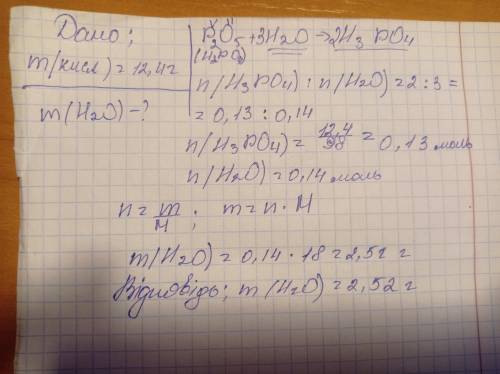 Дано;
m(кисл)=12,4г
m(H2O)-?
P2O5+3H2O->2H3PO4
(H3PO4)
n(H3PO4):n(H2O)=2:3=
=0,13:0,14
n(H3PO4)=12,4/98=0,13 моль
n(H2O)=0,14 моль
n=m/M; m=n·M
m(H2O)=0,14·18=2,52 г
Відповідь; m(H2O)=2,52г